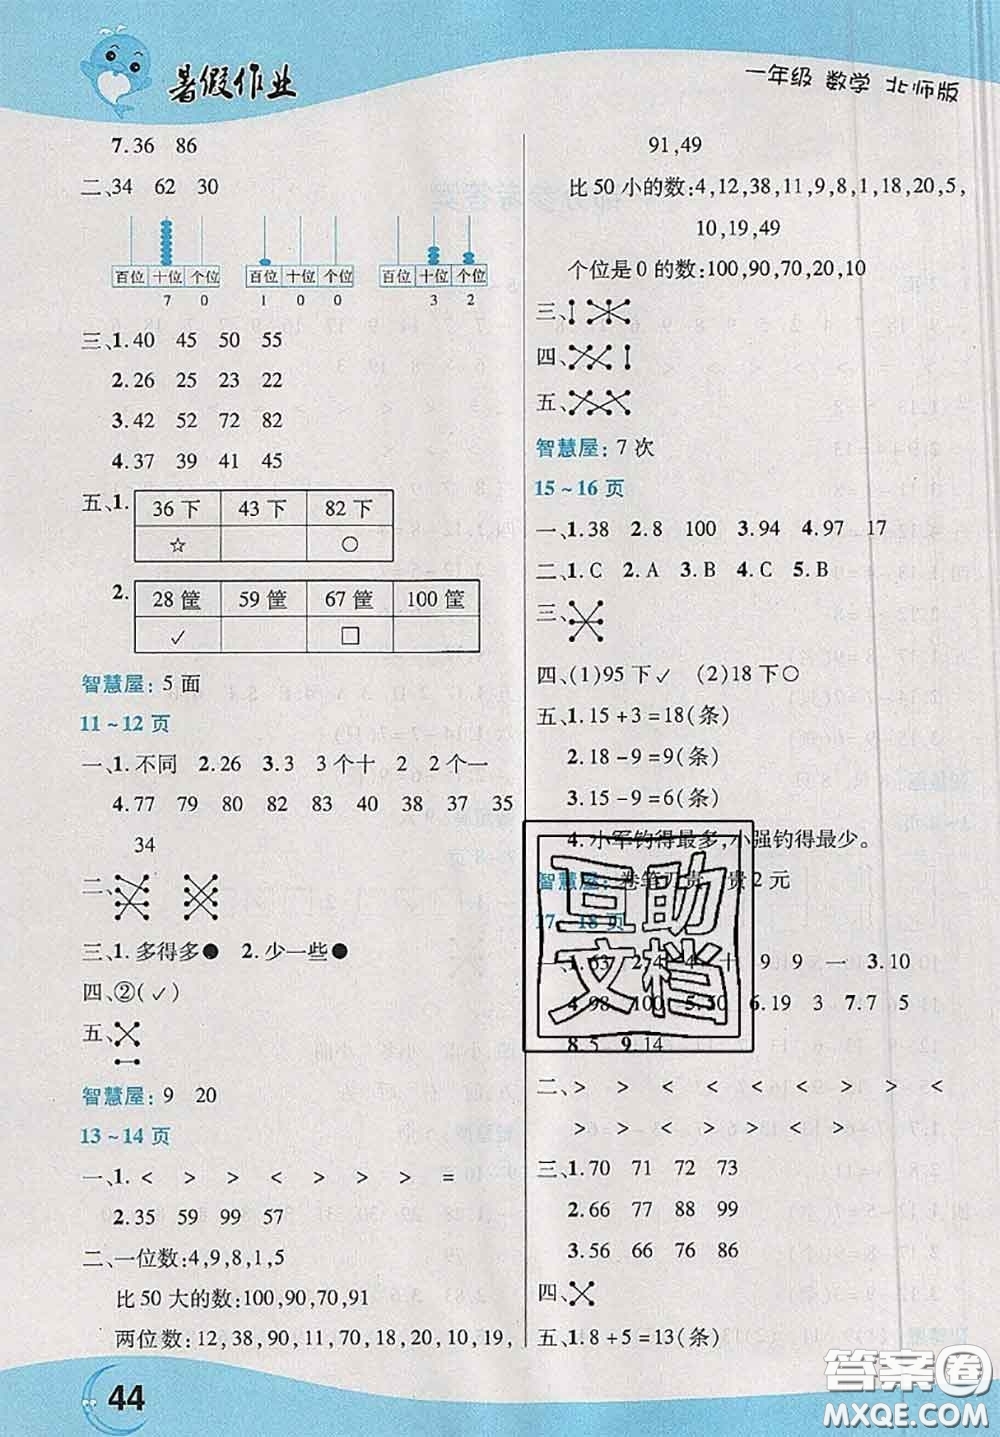 暑假作业
一年级 数学 北师版
7.36 86
二、34 62 30
百位 十位 个位 百位 十位 个位 百位 十位 个位
7 0 1 0 0 3 2
三、1.40 45 50 55
2.26 25 23 22
3.42 52 72 82
4.37 41 39 45
五、1.
36下 43下 82下
☆ ○
2.
28筐 59筐 67筐 100筐
✓ □
智慧屋：5面
11~12页
一、1.不同 2.26 3.3 3个十 2 2个一
4.77 79 80 82 83 40 38 37 35
34
二、
三、1.多得多● 2.少一些●
四、②(✓)
五、
智慧屋：9 20
13~14页
一、1.< > > < > > > =
2.35 59 99 57
二、一位数:4,9,8,1,5
比50大的数:100,90,70,91
两位数:12,38,90,11,70,18,20,10,19,
44
91,49
比50小的数:4,12,38,11,9,8,1,18,20,5,
10,19,49
个位是0的数:100,90,70,20,10
三、
四、
五、
智慧屋：7次
15~16页
一、1.38 2.8 100 3.94 4.97 17
二、1.C 2.A 3.B 4.C 5.B
三、
四、(1)95下✓ (2)18下○
五、1.15+3=18(条)
2.18-9=9(条)
3.15-9=6(条)
4.小军钓得最多,小强钓得最少。
智慧屋：卷笔刀贵 贵2元
17~18页
一、1.63 2.74 4 十 9 9 一 3.10
4.98 100 5.50 6.19 3 7.7 5
8.5 9.14
二、> > < < < < > > <
> > < < > > <
三、1.70 71 72 73
2.66 77 88 99
3.56 66 76 86
四、
五、1.8+5=13(条)
互助
文档
答案圈
MXQE.COM